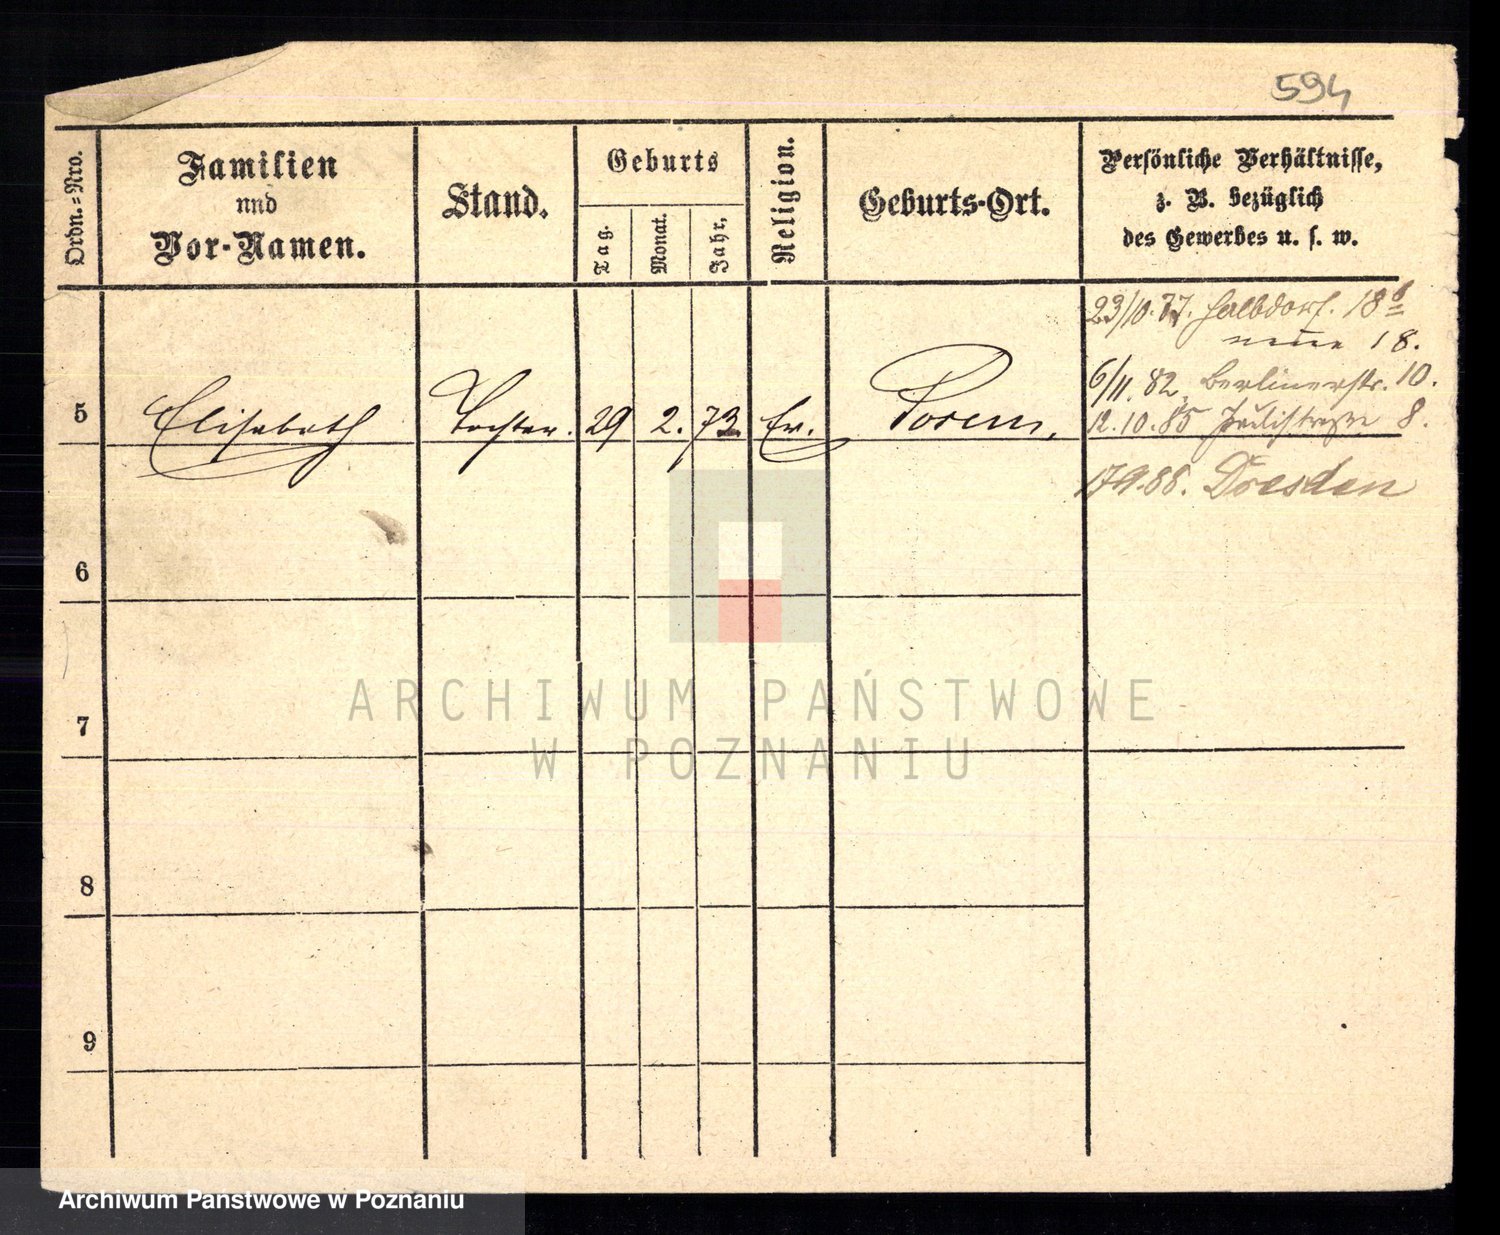 594
Ordn.=Nro.
Familien
und
Vor-Namen.
Stand.
Geburts
Tag.
Monat.
Jahr.
Religion.
Geburts-Ort.
Persönliche Verhältnisse,
z. B. bezüglich
des Gewerbes u. s. w.
23/10.77. Halbdorf. 18
neue 18.
6/11.82. Berlinerstr. 10.
5 Elisabeth Tochter. 29 2. 73. Ev. Posen.
12.10.85 8.
17.9.88. Dresden
6
7
8
9
ARCHIWUM PAŃSTWOWE
W POZNANIU
Archiwum Państwowe w Poznaniu